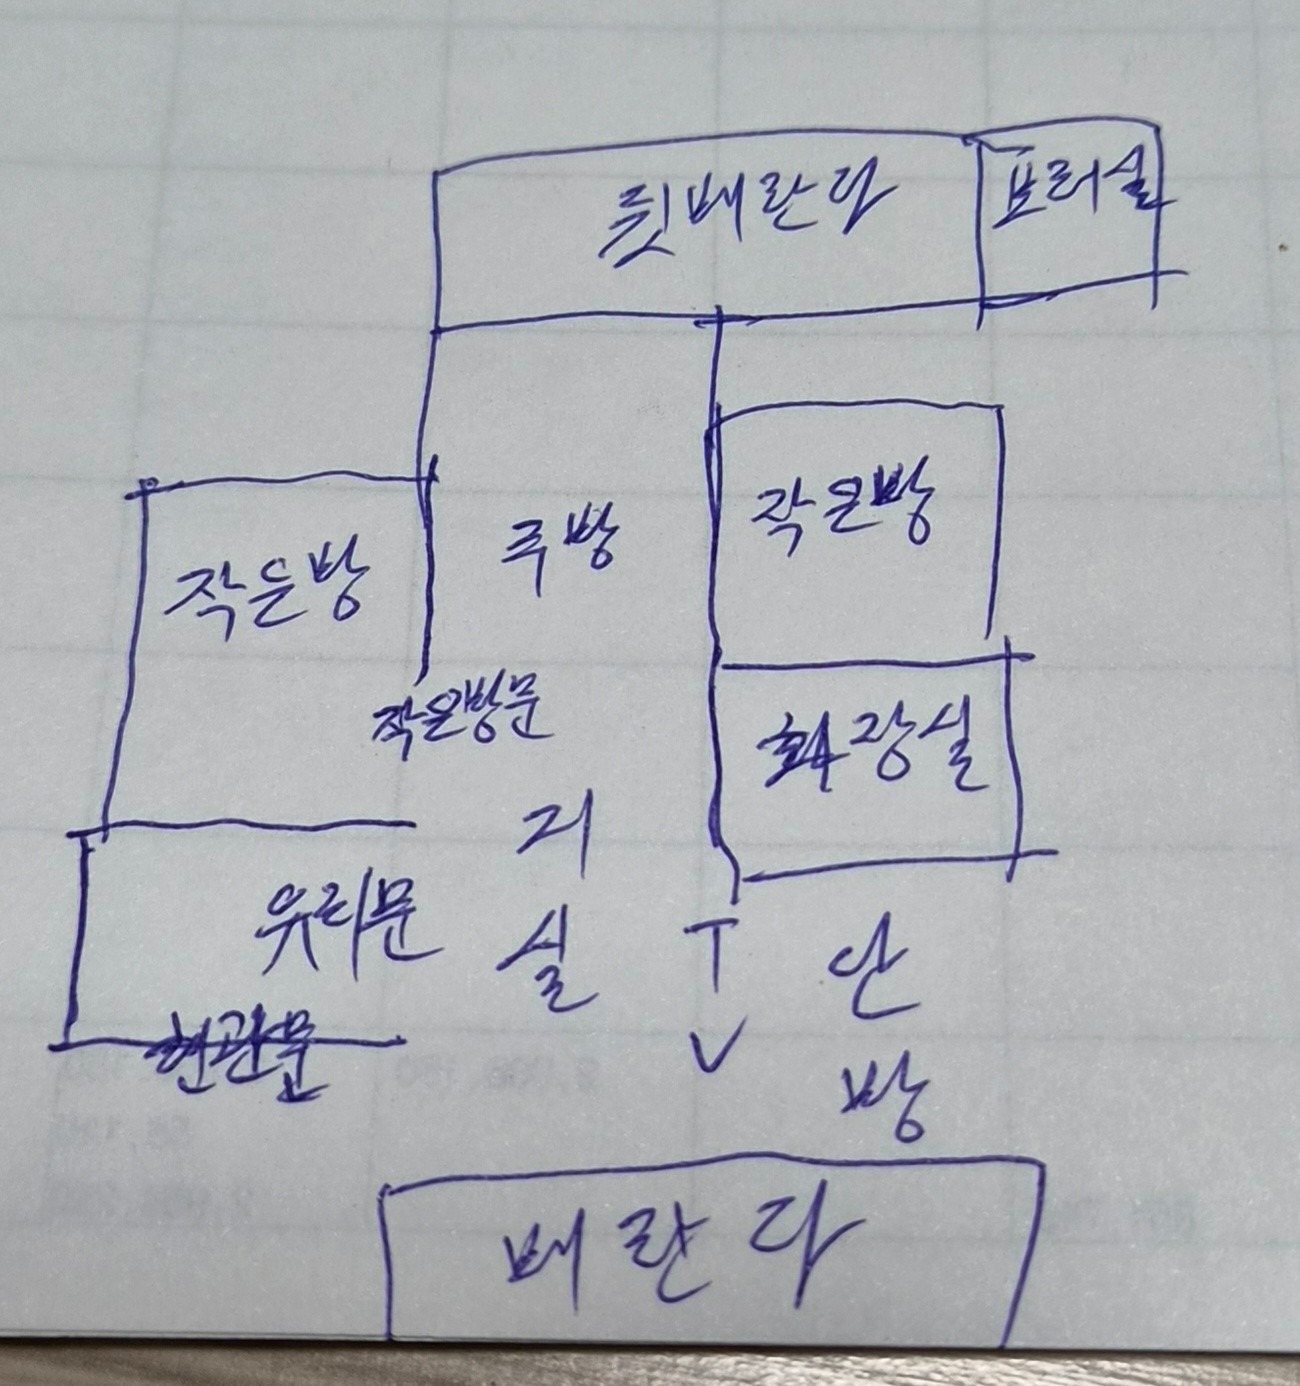 뒷베란다
보러실
작은방
주방
작은방
작은방문
화장실
거
실
유리문
T
V
안
방
현관문
베란다